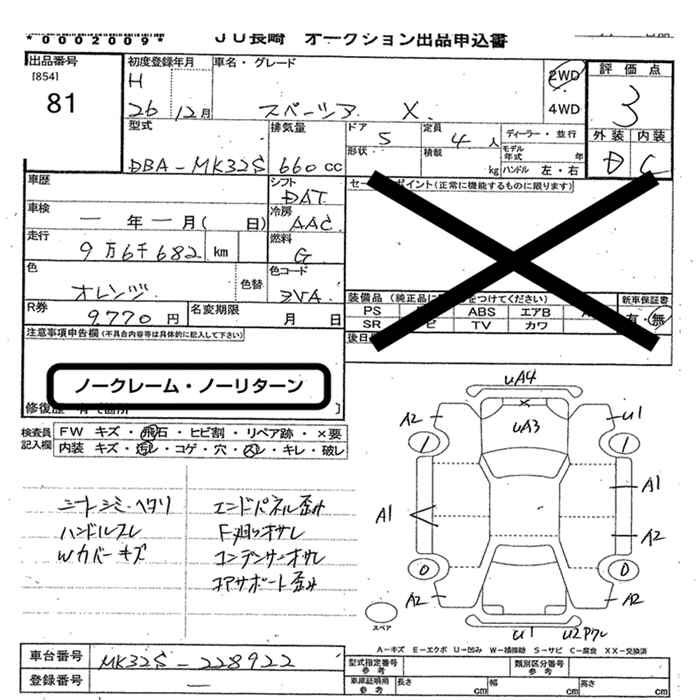 *0002009*
JU長崎 オークション出品申込書
出品番号
[854]
81
初度登録年月
H
26 12月
車名・グレード
スペーシア X
2WD
4WD
評価点
3
外装 内装
D C
型式
DBA-MK32S
排気量
660 CC
ドア 5
形状
定員 4人
積載 kg
ディーラー・並行
モデル年式 年
ハンドル 左・右
車歴
シフト
DAT
車検
一年一月( 日)
冷房
AAC
走行
9万6千682 km
燃料
G
色
オレンジ
色替
色コード
R券
9770円
名変期限
月 日
注意事項申告欄(不具合内容等は具体的に記入して下さい)
ノークレーム・ノーリターン
ポイント(正常に機能するものに限ります)
装備品
つけてください)
新車保証書
有・無
PS
ABS
エアB
SR
TV
カワ
検査員記入欄
FW キズ・飛石・ヒビ割・リペア跡・×要
内装 キズ・汚レ・コゲ・穴・スレ・キレ・破レ
シートシミ・ヘタリ
ハンドルスレ
Wカバーキズ
エンドパネル歪み
F廻りオサレ
コンデンサーオサレ
コアサポート歪み
UA4
A2
U1
UA3
1
1
A1
A1
A2
0
0
A2
A2
U1
スペア
A-キズ E-エクボ U-凹み W-補修跡 S-サビ C-腐食 XX-交換済
車台番号
MK32S-228922
登録番号
型式指定番号
参考
類別区分番号
参考
車庫証明用
参考
長さ cm
幅 cm
高さ cm